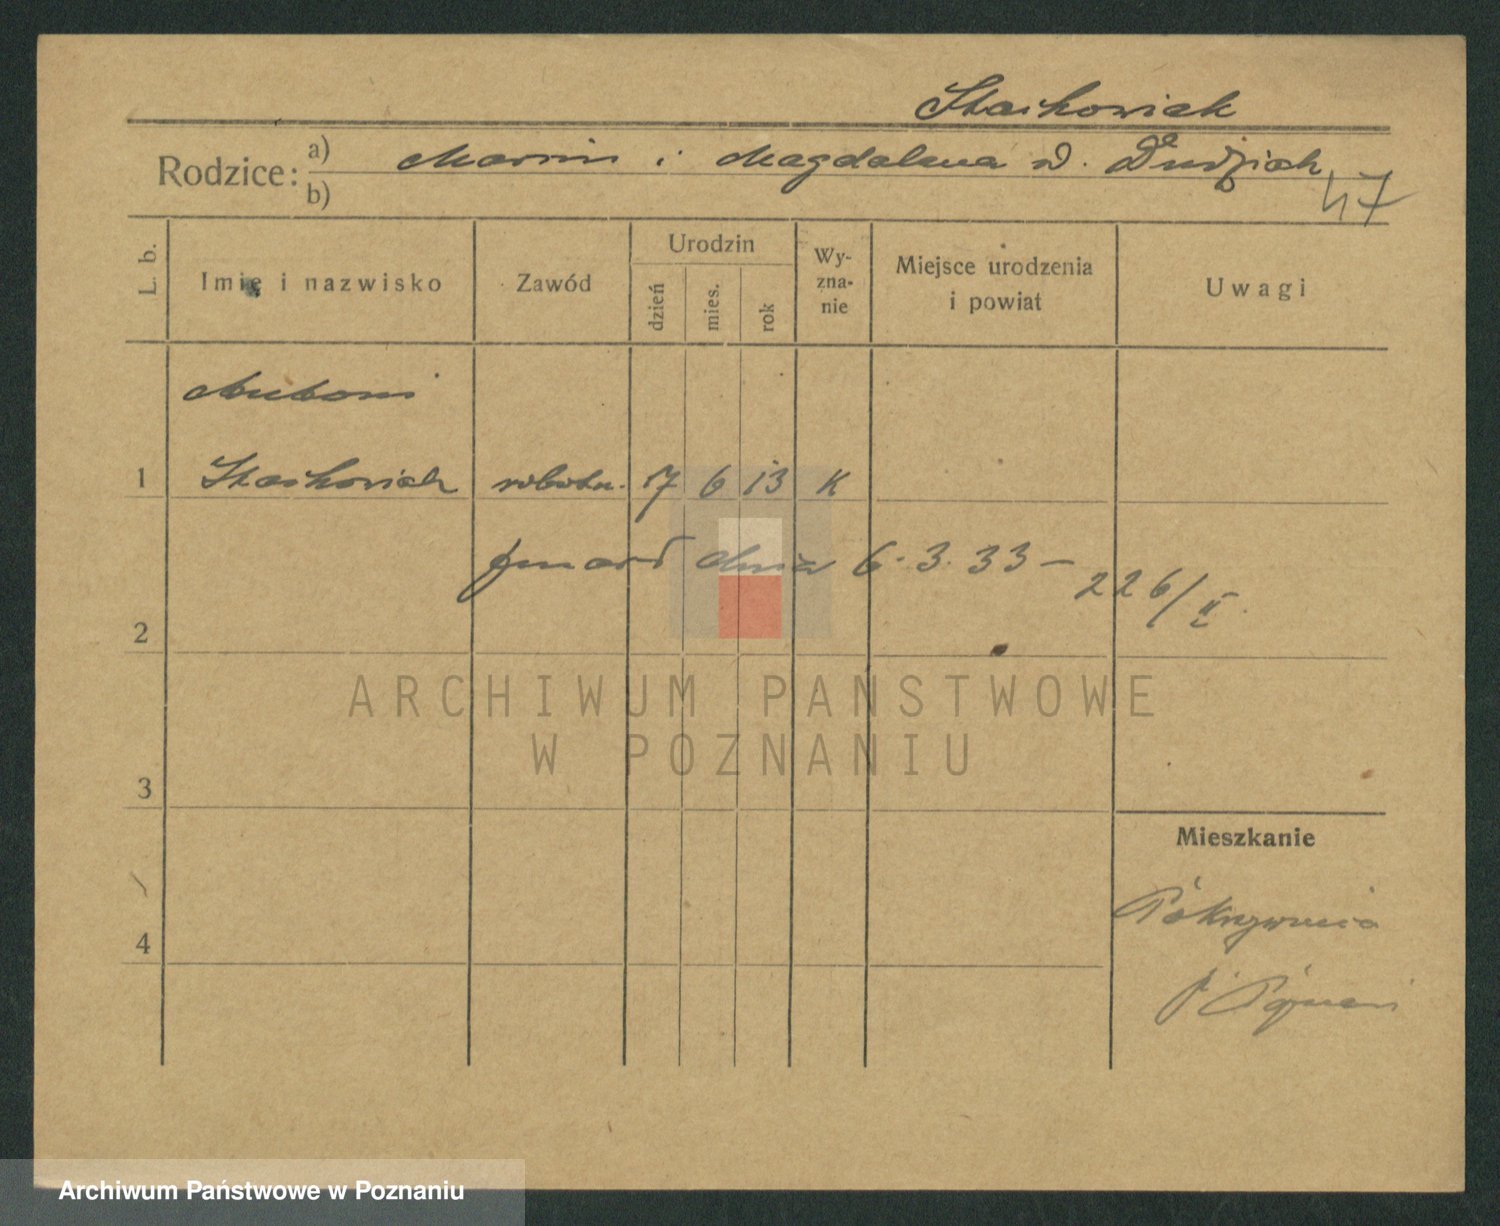 Stachowiak
Rodzice: a) Marcin i Magdalena d. Dudziak
b)
47
L. b.
Imię i nazwisko
Zawód
Urodzin
dzień
mies.
rok
Wy-
zna-
nie
Miejsce urodzenia
i powiat
Uwagi
Antoni
1 Stachowiak robotn. 17 6 13 K
zmarł dnia 6. 3. 33 – 226/II.
2
ARCHIWUM PAŃSTWOWE
W POZNANIU
3
Mieszkanie
Pokrzywnica
4
p. Poznań
Archiwum Państwowe w Poznaniu